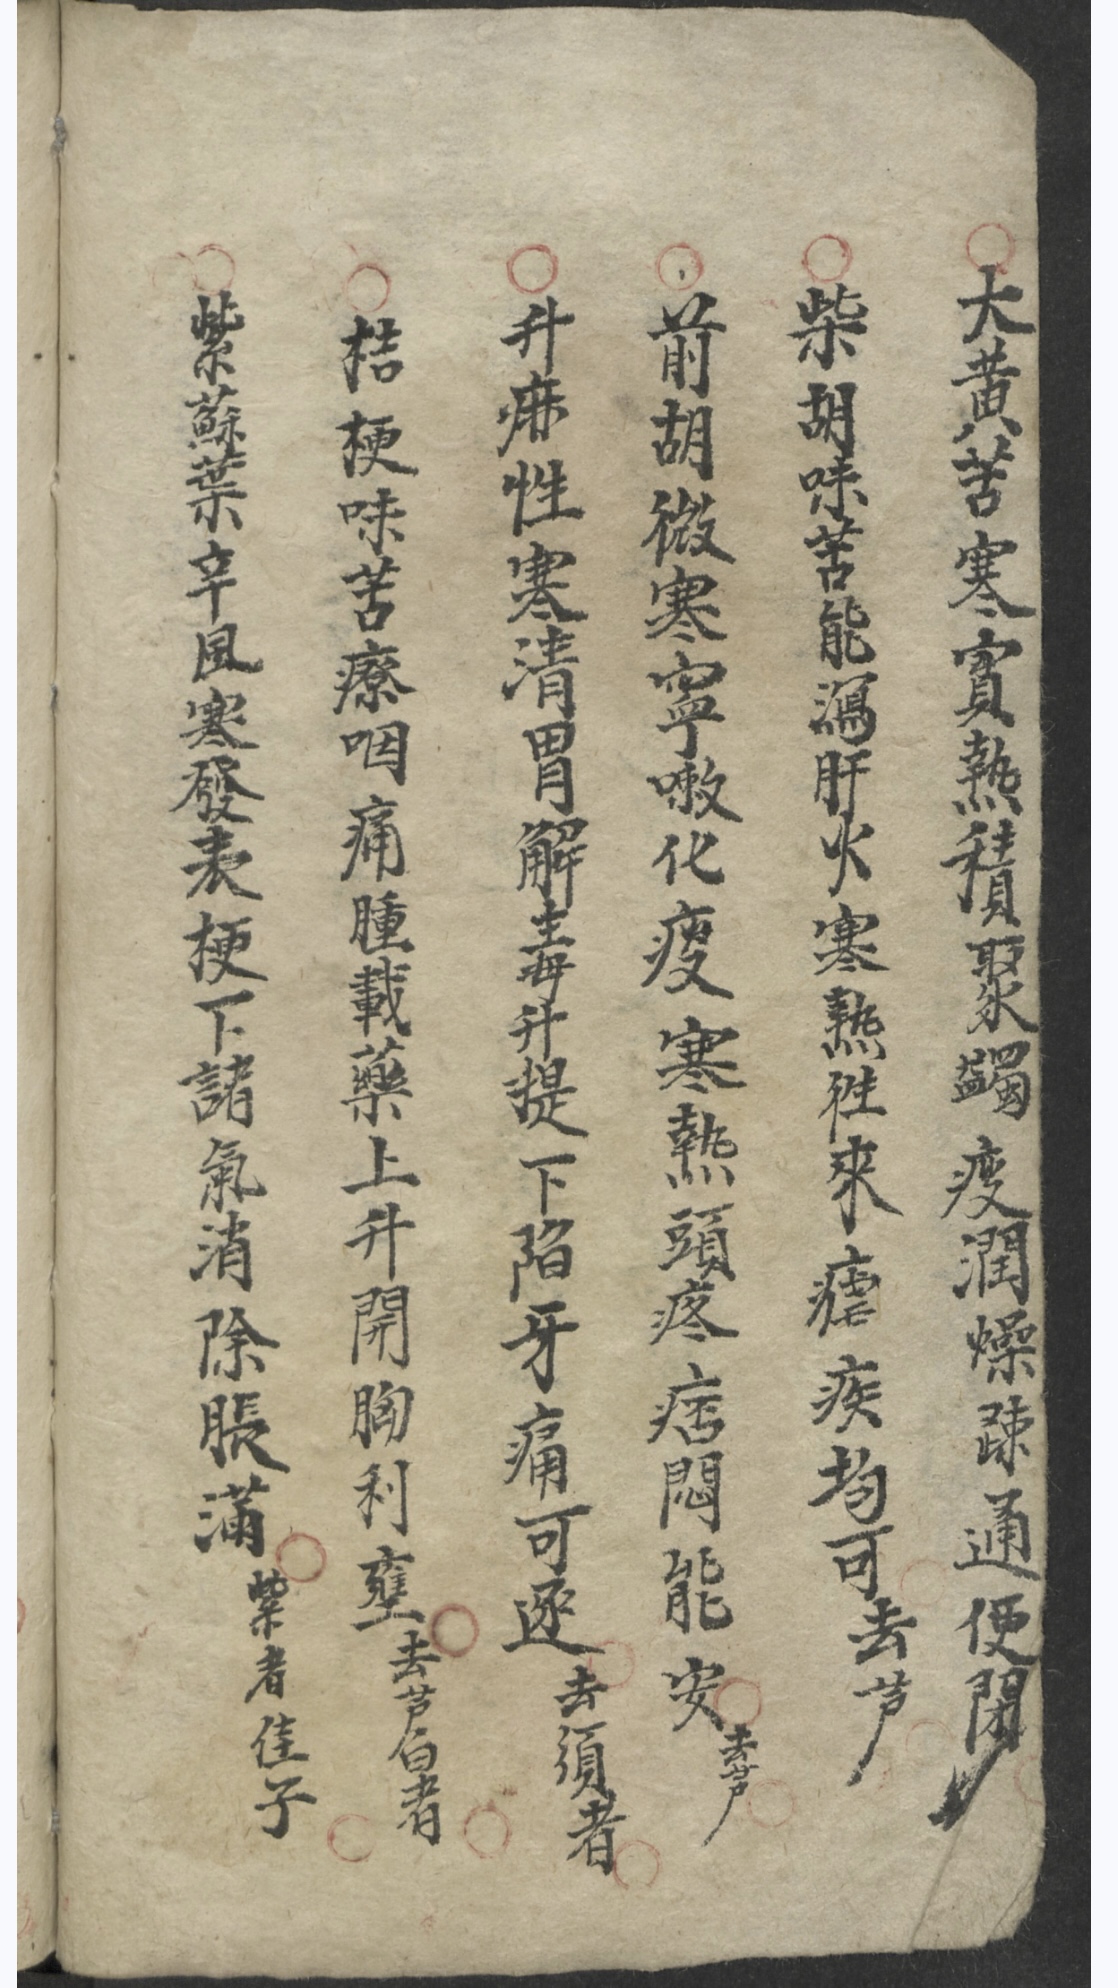 大黃苦寒實熱積聚蠲痰潤燥疎通便閉
柴胡味苦能瀉肝火寒熱往來瘧疾均可去芦
前胡微寒寧嗽化痰寒熱頭疼痞悶能安去芦
升麻性寒清胃解毒升提下陷牙痛可逐去須者
桔梗味苦療咽痛腫載藥上升開胸利壅去芦白者
紫蘇葉辛風寒發表梗下諸氣消除脹滿紫者佳子